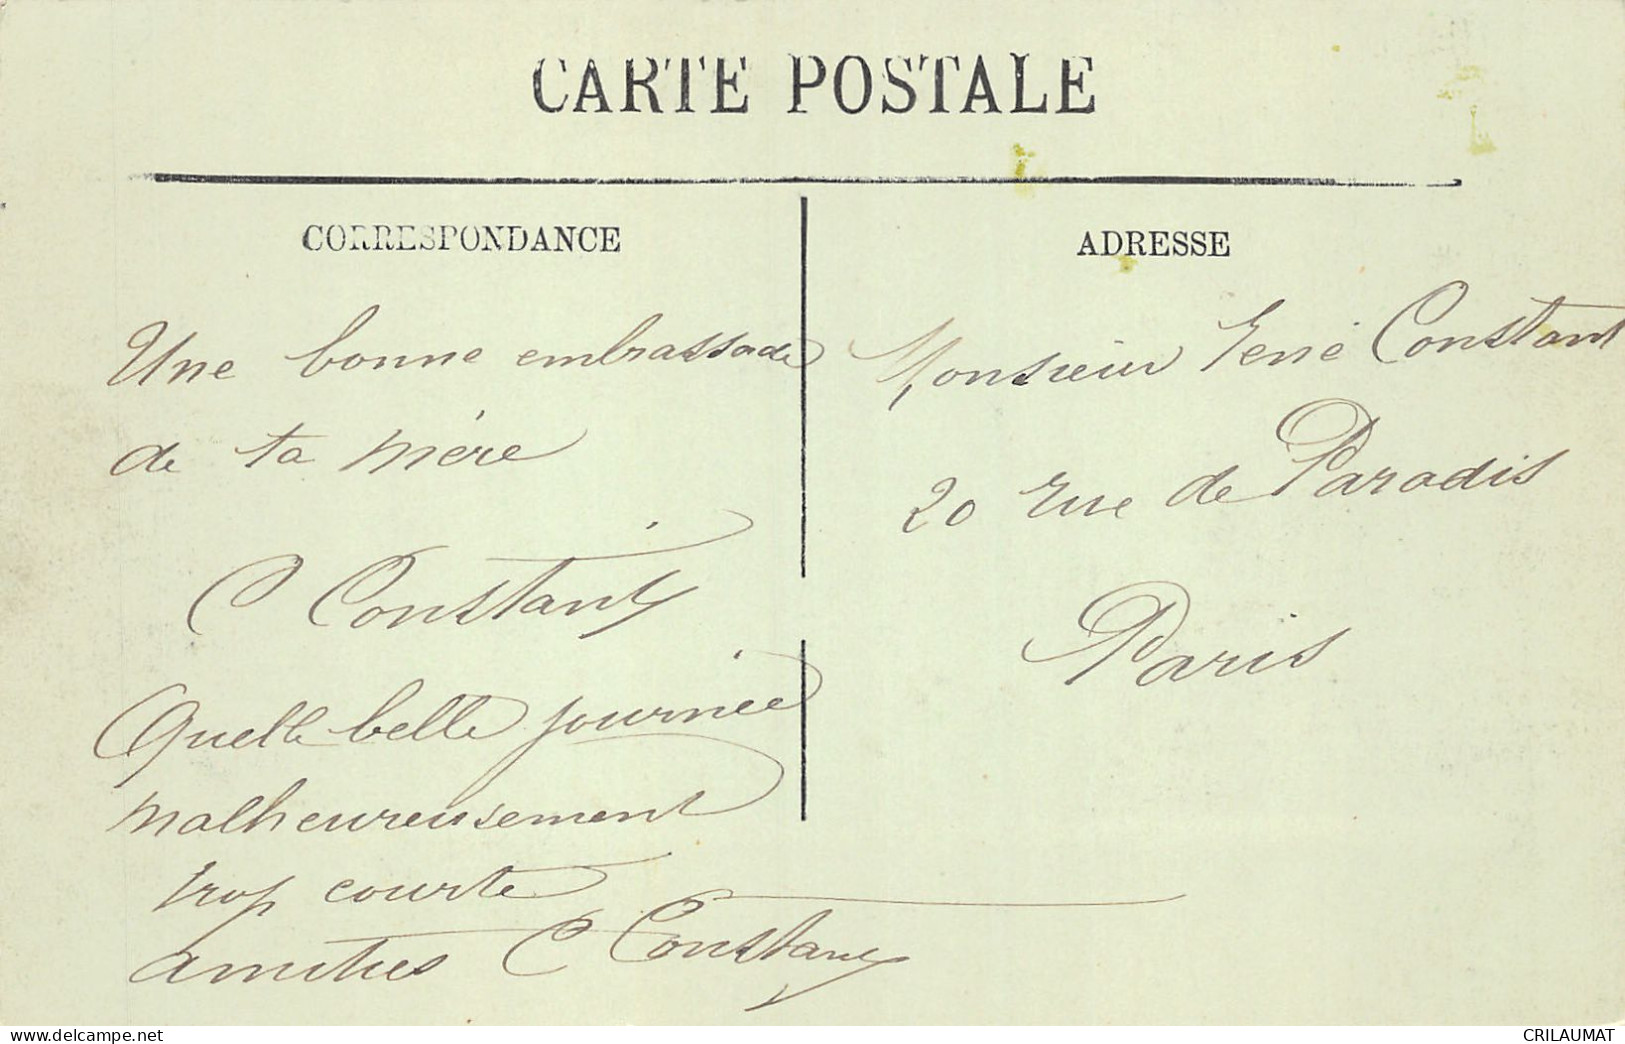 CARTE POSTALE
CORRESPONDANCE
Une bonne embrassade
de ta mère
C Constant
Quelle belle journée
malheureusement
trop courte
amitiés C Constant
ADRESSE
Monsieur René Constant
20 rue de Paradis
Paris
www.delcampe.net
CRILAUMAT